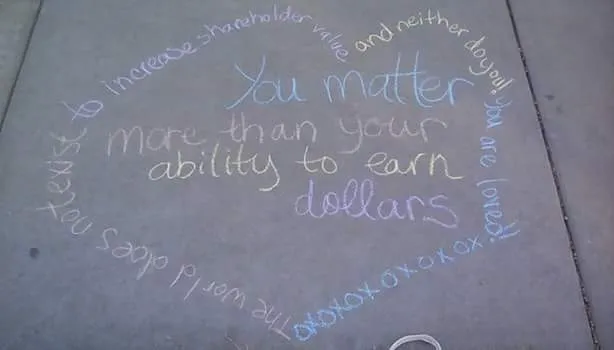 You matter
more than your
ability to earn
dollars
The world does not exist to increase shareholder value
and neither do you! You are loved!!
oxoxoxoxoxoxox